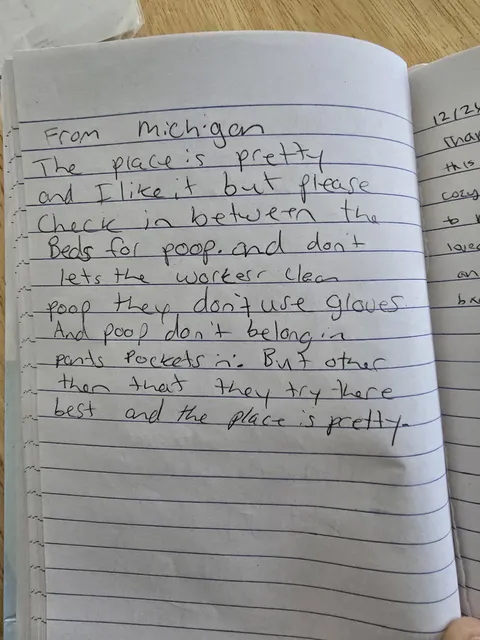 From Michigan
The place is pretty
and I like it but please
Check in between the
Beds for poop. and don't
lets the workesr clean
poop they don't use gloves
And poop don't belong in
pants Pockets in. But other
then that they try there
best and the place is pretty.
12/24
this
cozy
to
an